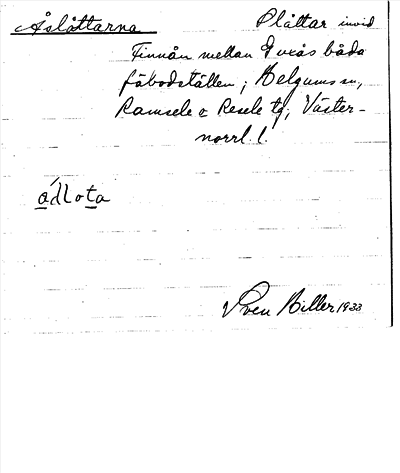 Åslåttarna Slåttar invid
Finnån mellan Evrås båda
fäbodställen; Helgums sn,
Ramsele o Resele tg; Väster-
norrl. l.
ádlota
Sven Biller 1933